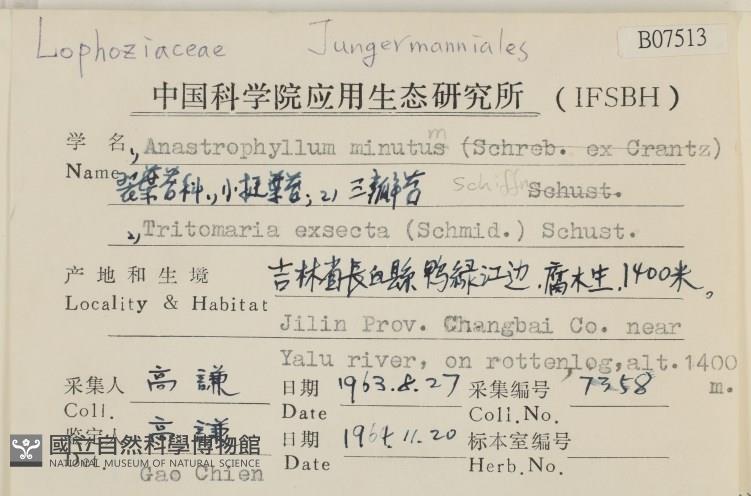 Lophoziaceae Jungermanniales B07513
中国科学院应用生态研究所 (IFSBH)
学名 1, Anastrophyllum minutus m (Schreb. ex Crantz)
Name 裂葉苔科 1, 小挺葉苔; 2) 三瓣苔 Schiffn Schust.
2, Tritomaria exsecta (Schmid.) Schust.
产地和生境 吉林省長白縣鸭緑江边, 腐木生, 1400米。
Locality & Habitat
Jilin Prov. Changbai Co. near
Yalu river, on rottenlog, alt. 1400
m.
采集人 高謙 日期 1963.8.27 采集编号 7358
Coll. Date Coll.No.
鉴定人 高謙 日期 1964.11.20 标本室编号
Gao Chien Date Herb.No.
國立自然科學博物館
NATIONAL MUSEUM OF NATURAL SCIENCE